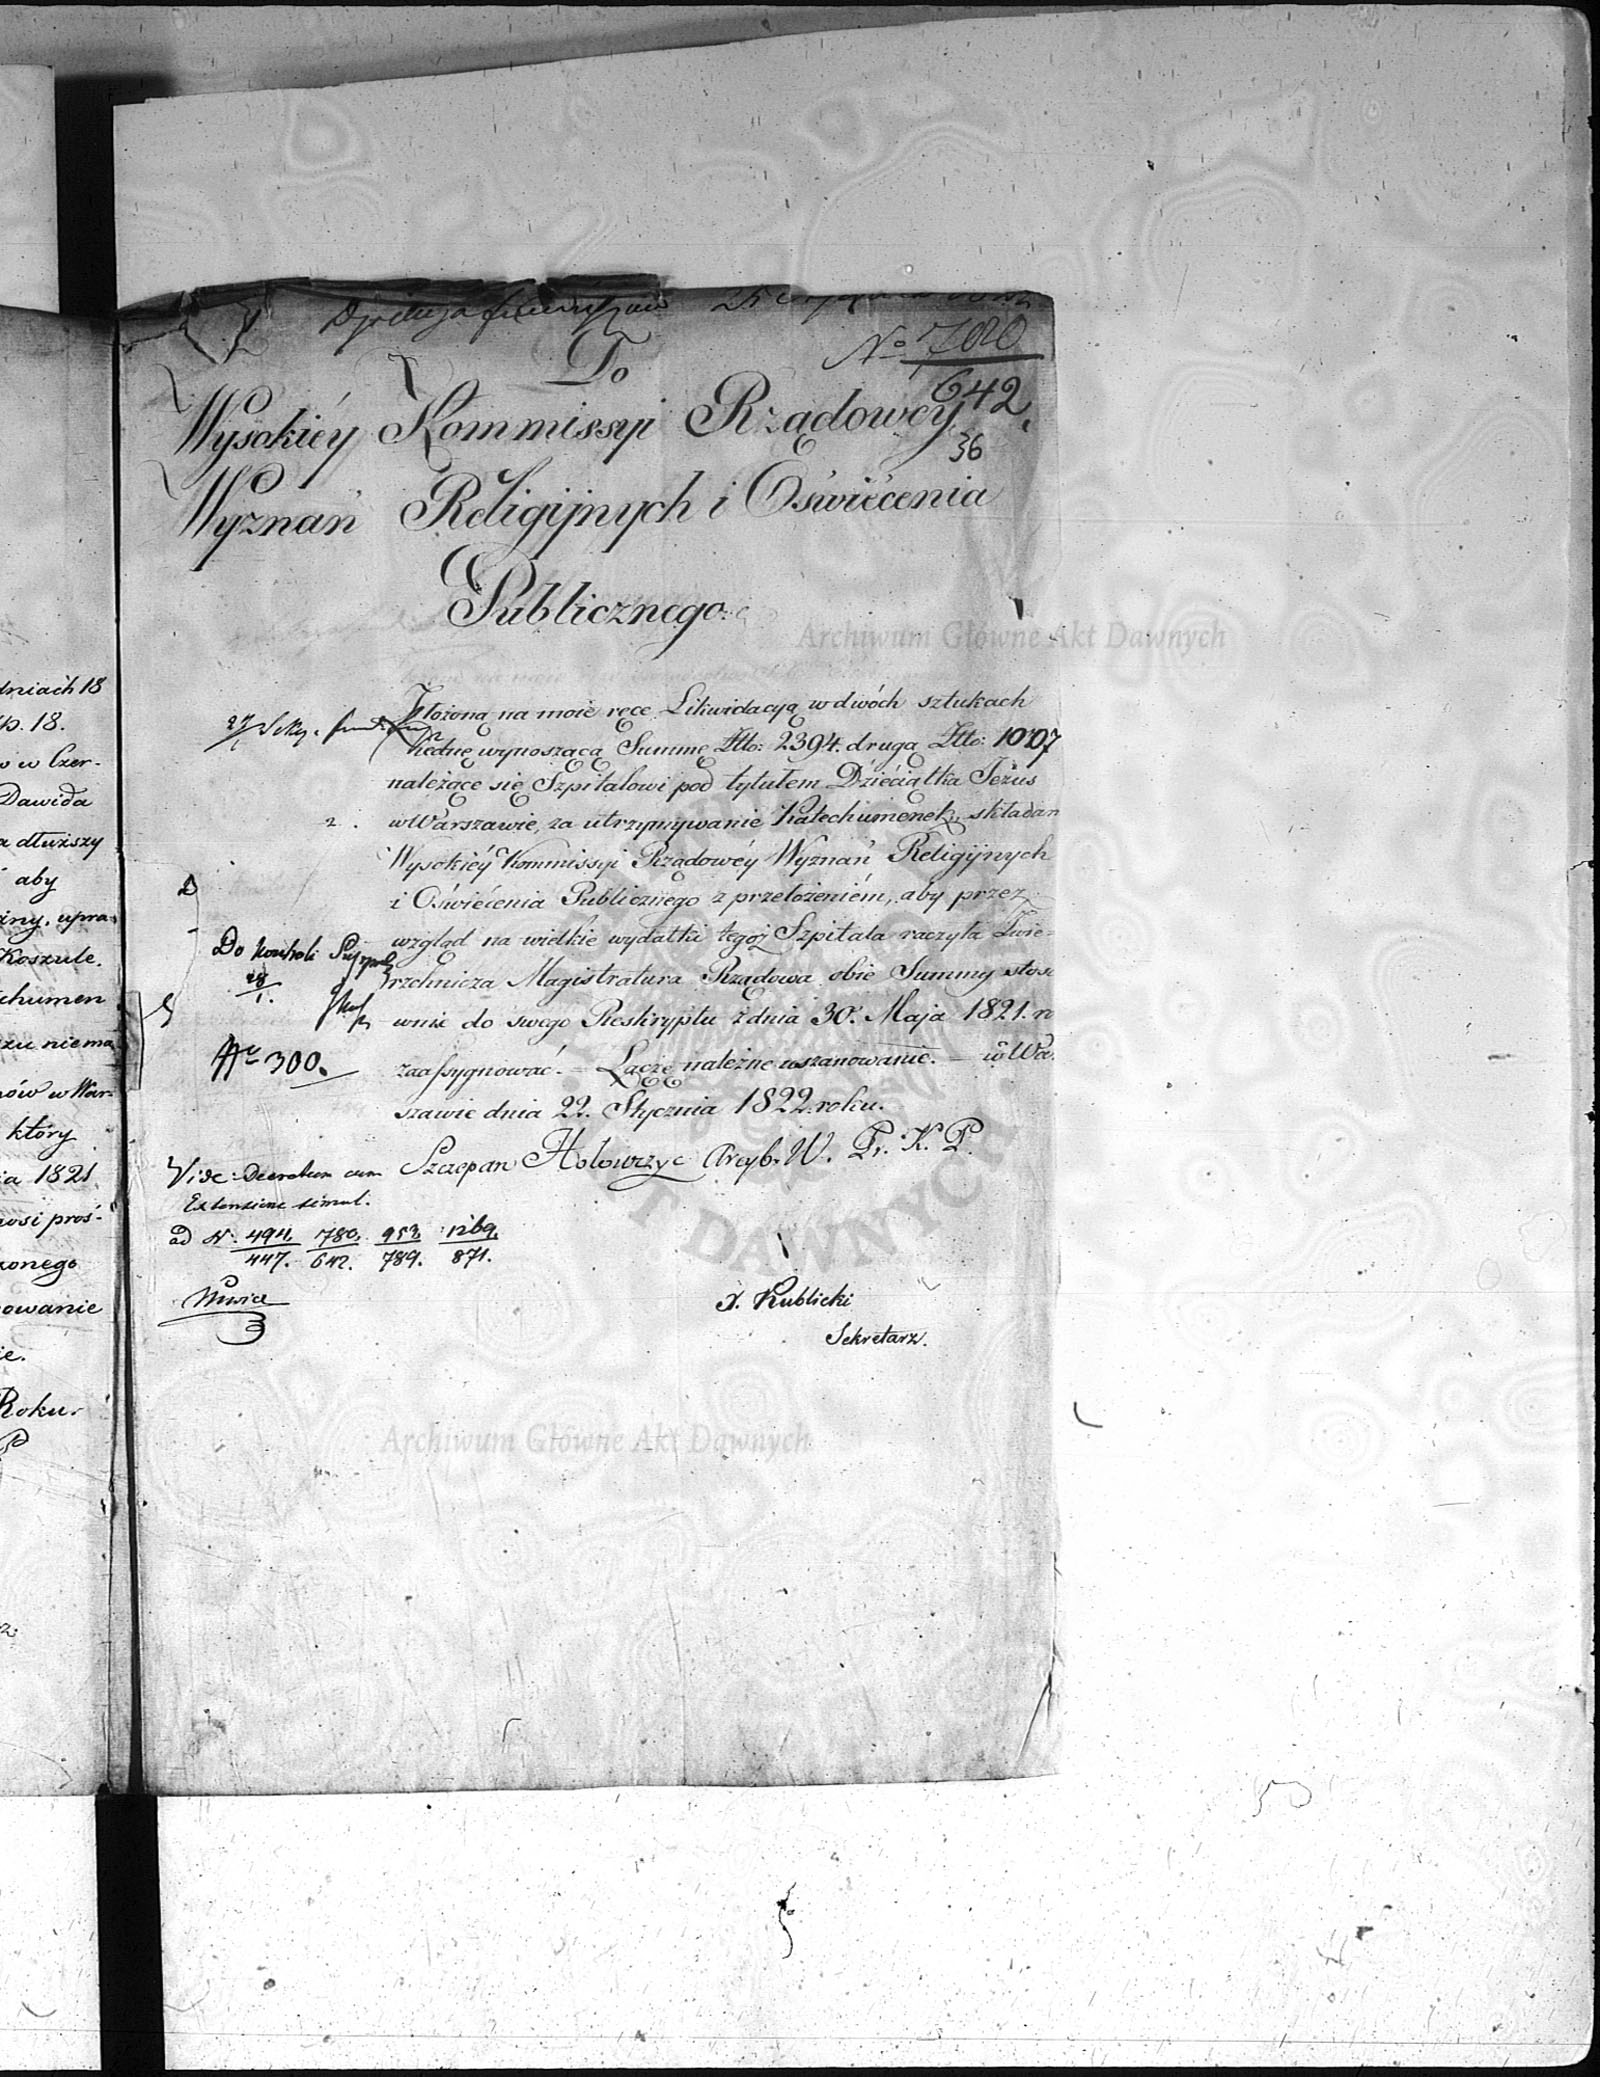 dniach 18
18.
w Czer-
Dawida
dłuższy
aby
upra-
Koszule.
chumen
niema
w War-
który
1821
proś-
owanie
Roku.
No 780
642.
36
Do
Wysokiéy Kommissyi Rządowéy
Wyznań Religijnych i Oświécenia
Publicznego.
Złożoną na moie ręce Likwidacyą w dwóch sztukach
iednę wynoszącą Summę Złto: 2394. drugą Złto: 1007
należące się Szpitalowi pod tytułem Dzieciątka Jezus
w Warszawie, za utrzymywanie Katechumenek, składam
Wysokiéy Kommissyi Rządowéy Wyznań Religijnych
i Oświécenia Publicznego z przełożeniém, aby przez
wzgląd na wielkie wydatki tegoż Szpitala raczyła Zwie-
rzchnicza Magistratura Rządowa obie Summy stoso
wnie do swego Reskryptu z dnia 30. Maja 1821. r
zaassygnować. – Łączę należne uszanowanie. – w War
szawie dnia 22. Stycznia 1822. roku.
Szczepan Hołowczyc Arcyb. W. Pr. K. P.
Do Kontroli
28
1.
No 300.
Vide: Decretum cum
Extensione simul.
ad N. 494. 780. 953. 1269.
447. 642. 789. 871.
X. Kublicki
Sekretarz.
Archiwum Główne Akt Dawnych
Archiwum Główne Akt Dawnych